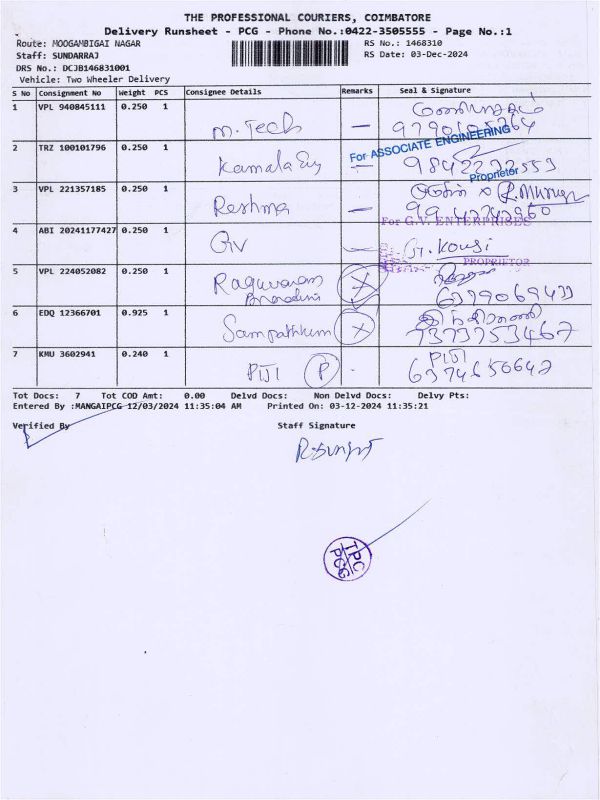 THE PROFESSIONAL COURIERS, COIMBATORE
Delivery Runsheet - PCG - Phone No.:0422-3505555 - Page No.:1
Route: MOOGAMBIGAI NAGAR RS No.: 1468310
Staff: SUNDARRAJ RS Date: 03-Dec-2024
DRS No.: DCJB146831001
Vehicle: Two Wheeler Delivery
S No Consignment No Weight PCS Consignee Details Remarks Seal & Signature
1 VPL 940845111 0.250 1 M.Tech —
2 TRZ 100101796 0.250 1 Kamala — For ASSOCIATE ENGINEERING
Proprietor
3 VPL 221357185 0.250 1 Reshma —
For G.V. ENTERPRISES
4 ABI 20241177427 0.250 1 GV — G. Kousi
PROPRIETOR
5 VPL 224052082 0.250 1 Raguvaram X
6379069439
6 EDQ 12366701 0.925 1 Sampathkum X
7373753467
7 KMU 3602941 0.240 1 PITI P - PITI
6374656642
Tot Docs: 7 Tot COD Amt: 0.00 Delvd Docs: Non Delvd Docs: Delvy Pts:
Entered By :MANGAIPCG 12/03/2024 11:35:04 AM Printed On: 03-12-2024 11:35:21
Verified By Staff Signature
TPC
PCG